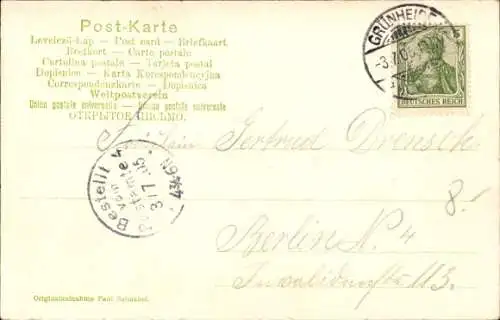 Post-Karte
Levelező-Lap — Post card — Briefkaart
Brefkort — Carte postale
Cartolina postale — Tarjeta postal
Dopisnice — Karta Korespondencyjna
Correspondenzkarte — Dopisnica
Weltpostverein
Union postale universelle — Unione postale universale
ОТКРЫТОЕ ПИСЬМО.
GRÜNHEIDE
DEUTSCHES REICH
Fräulein Gertrud Drensch
Bestellt
vom
Postamte 4
3/7.05
8.
Berlin N. 4
Invalidenstr 113.
Originalaufnahme Paul Schnabel.